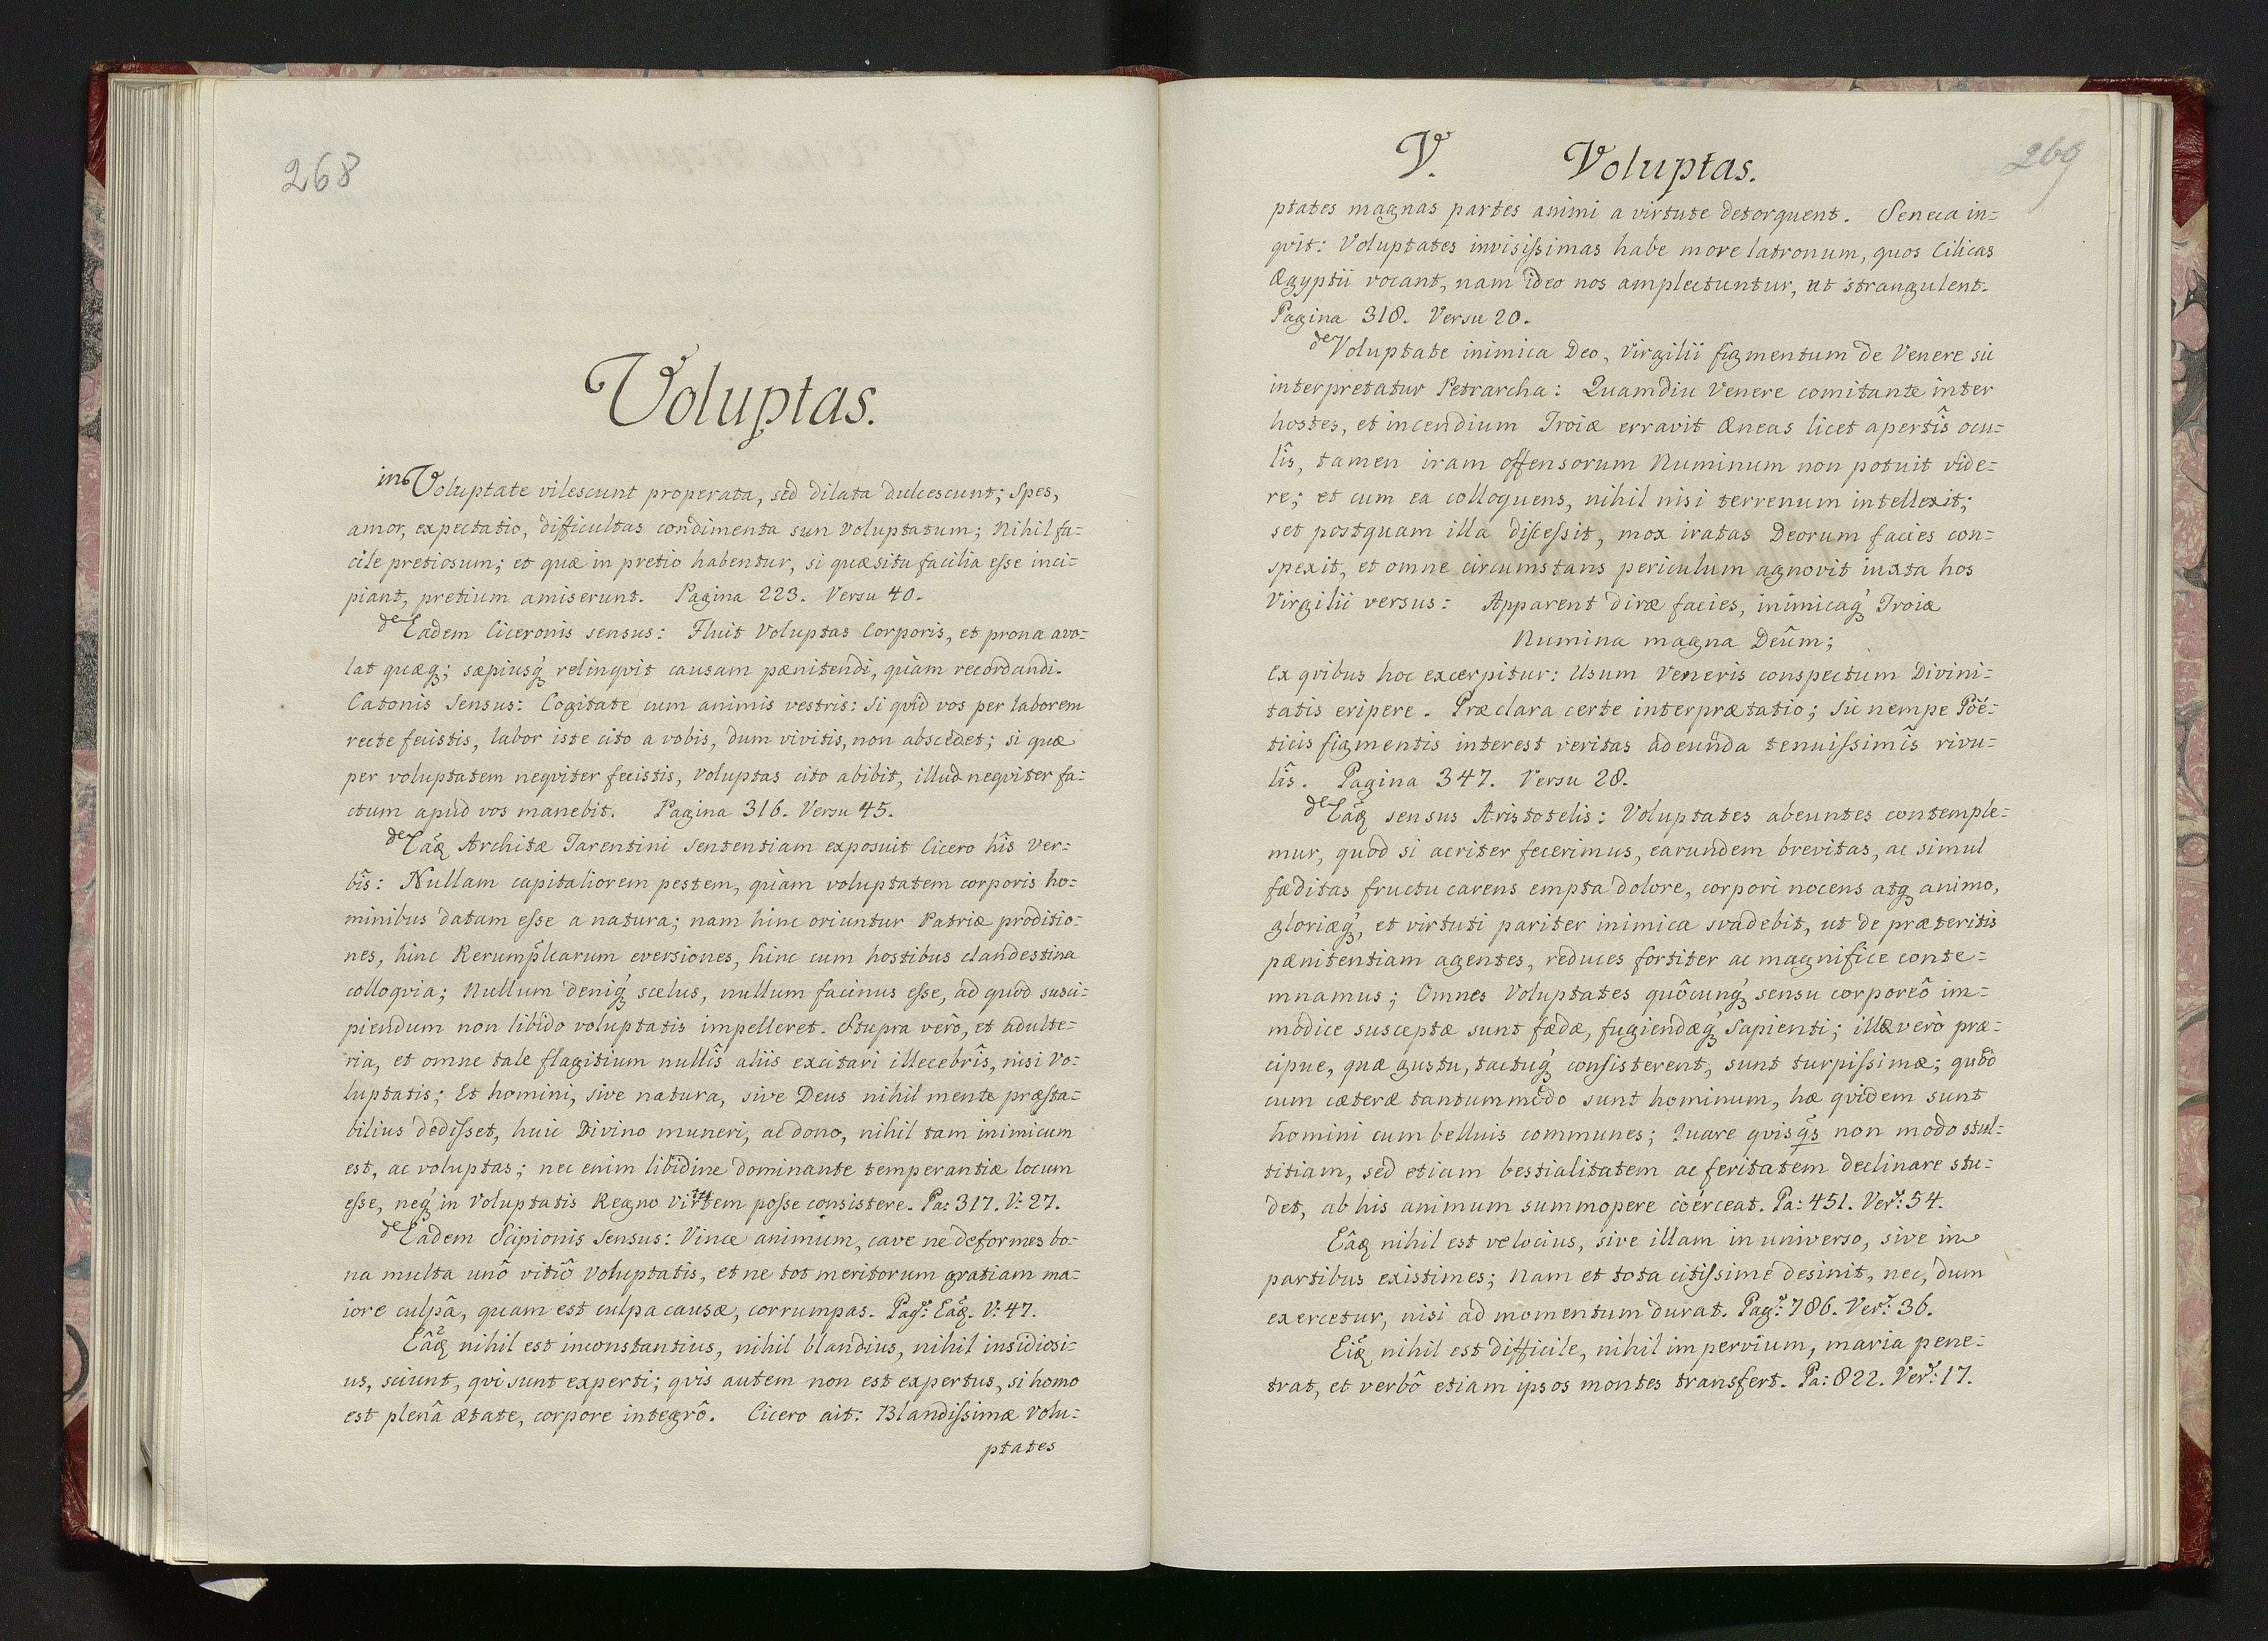 268
Voluptas.
in Voluptate vilescunt properata, sed dilata dulcescunt; Spes,
amor, expectatio, difficultas condimenta sun Voluptatum; Nihil fa=
cile pretiosum; et quæ in pretio habentur, si quæsitu facilia esse inci=
piant, pretium amiserunt. Pagina 223. Versu 40.
de Eadem Ciceronis sensus: Fluit Voluptas Corporis, et prona avo=
lat quæq; sæpiusq́ relinqvit causam pænitendi, quàm recordandi.
Catonis Sensus: Cogitate cum animis vestris: Si qvid vos per laborem
recte fecistis, labor iste cito a vobis, dum vivitis, non abscedet; si quæ
per voluptatem neqviter fecistis, Voluptas cito abibit, illud neqviter fa=
ctum apud vos manebit. Pagina 316. Versu 45.
de Eâq Architæ Tarentini Sententiam exposuit Cicero hîs ver=
bîs: Nullam capitaliorem pestem, quàm voluptatem corporis ho=
minibus datam esse a natura; nam hinc oriuntur Patriæ proditio=
nes, hinc Rerumplcarum eversiones, hinc cum hostibus clandestina
colloqvia; Nullum deniq́ scelus, nullum facinus esse, ad quod susci=
piendum non libido voluptatis impelleret. Stupra verò, et adulte=
ria, et omne tale flagitium nullîs aliis excitari illecebrîs, nisi Vo=
luptatis; Et homini, sive natura, sive Deus nihil mente præsta=
bilius dedisset, huic Divino muneri, ac dono, nihil tam inimicum
est, ac voluptas; nec enim libidine dominante temperantiæ locum
esse, neq́ in Voluptatis Regno Virtutem posse consistere. Pa: 317. V: 27.
de Eadem Scipionis Sensus: Vince animum, cave ne deformes bo=
na multa unô vitiô Voluptatis, et ne tot meritorum gratiam ma=
iore culpâ, quam est culpa causæ, corrumpas. Pag: Eâq. V: 47.
Eâq nihil est inconstantius, nihil blandius, nihil insidiosi=
us, sciunt, qvi sunt experti; qvis autem non est expertus, si homo
est plenâ ætate, corpore integrô. Cicero ait: Blandissimæ Volu=
ptates
V. Voluptas.
269
ptates magnas partes animi a virtute detorquent. Seneca in=
qvit: Voluptates invisissimas habe more latronum, quos Cilicas
Ægyptii vocant, nam ideo nos amplectuntur, ut strangulent.
Pagina 318. Versu 20.
de Voluptate inimica Deo, Virgilii figmentum de Venere sic
interpretatur Petrarcha: Quamdiu Venere comitante inter
hostes, et incendium Troiæ erravit Æneas licet apertîs ocu=
lîs, tamen iram offensorum Numinum non potuit vide=
re; et cum ea colloquens, nihil nisi terrenum intellexit;
set postquam illa discessit, mox iratas Deorum facies con=
spexit, et omne circumstans periculum agnovit iuxta hos
Virgilii versus: Apparent diræ facies, inimicaq́ Troiæ
Numina magna Deûm;
ex qvibus hoc excerpitur: Usum Veneris conspectum Divini=
tatis eripere. Præclara certe interprætatio; sic nempe Poë=
ticis figmentis interest veritas adeunda tenuissimîs rivu=
lîs. Pagina 347. Versu 28.
de Eâq sensus Aristotelis: Voluptates abeuntes contemple=
mur, quod si acriter fecerimus, earundem brevitas, ac simul
fæditas fructu carens empta dolore, corpori nocens atq animo,
gloriæq́, et virtuti pariter inimica svadebit, ut de præteritis
pænitentiam agentes, reduces fortiter ac magnifice conte=
mnamus; Omnes Voluptates quôcunq́ sensu corporeô im=
modice susceptæ sunt fædæ, fugiendæq́ Sapienti; illæ verò præ=
cipue, quæ gustu, tactuq́ consisterent, sunt turpissimæ; qvô
cum cæteræ tantummodo sunt hominum, hæ qvidem sunt
homini cum belluis communes; Quare qvisqs non modo stul=
titiam, sed etiam bestialitatem ac feritatem declinare stu=
det, ab his animum summopere coërceat. Pa: 451. Ver: 54.
Eâq nihil est velocius, sive illam in universo, sive in
partibus existimes; Nam et tota citissime desinit, nec, dum
exercetur, nisi ad momentum durat. Pag: 786. Ver: 36.
Eiq nihil est difficile, nihil impervium, maria pene=
trat, et verbô etiam ipsos montes transfert. Pa: 822. Ver: 17.